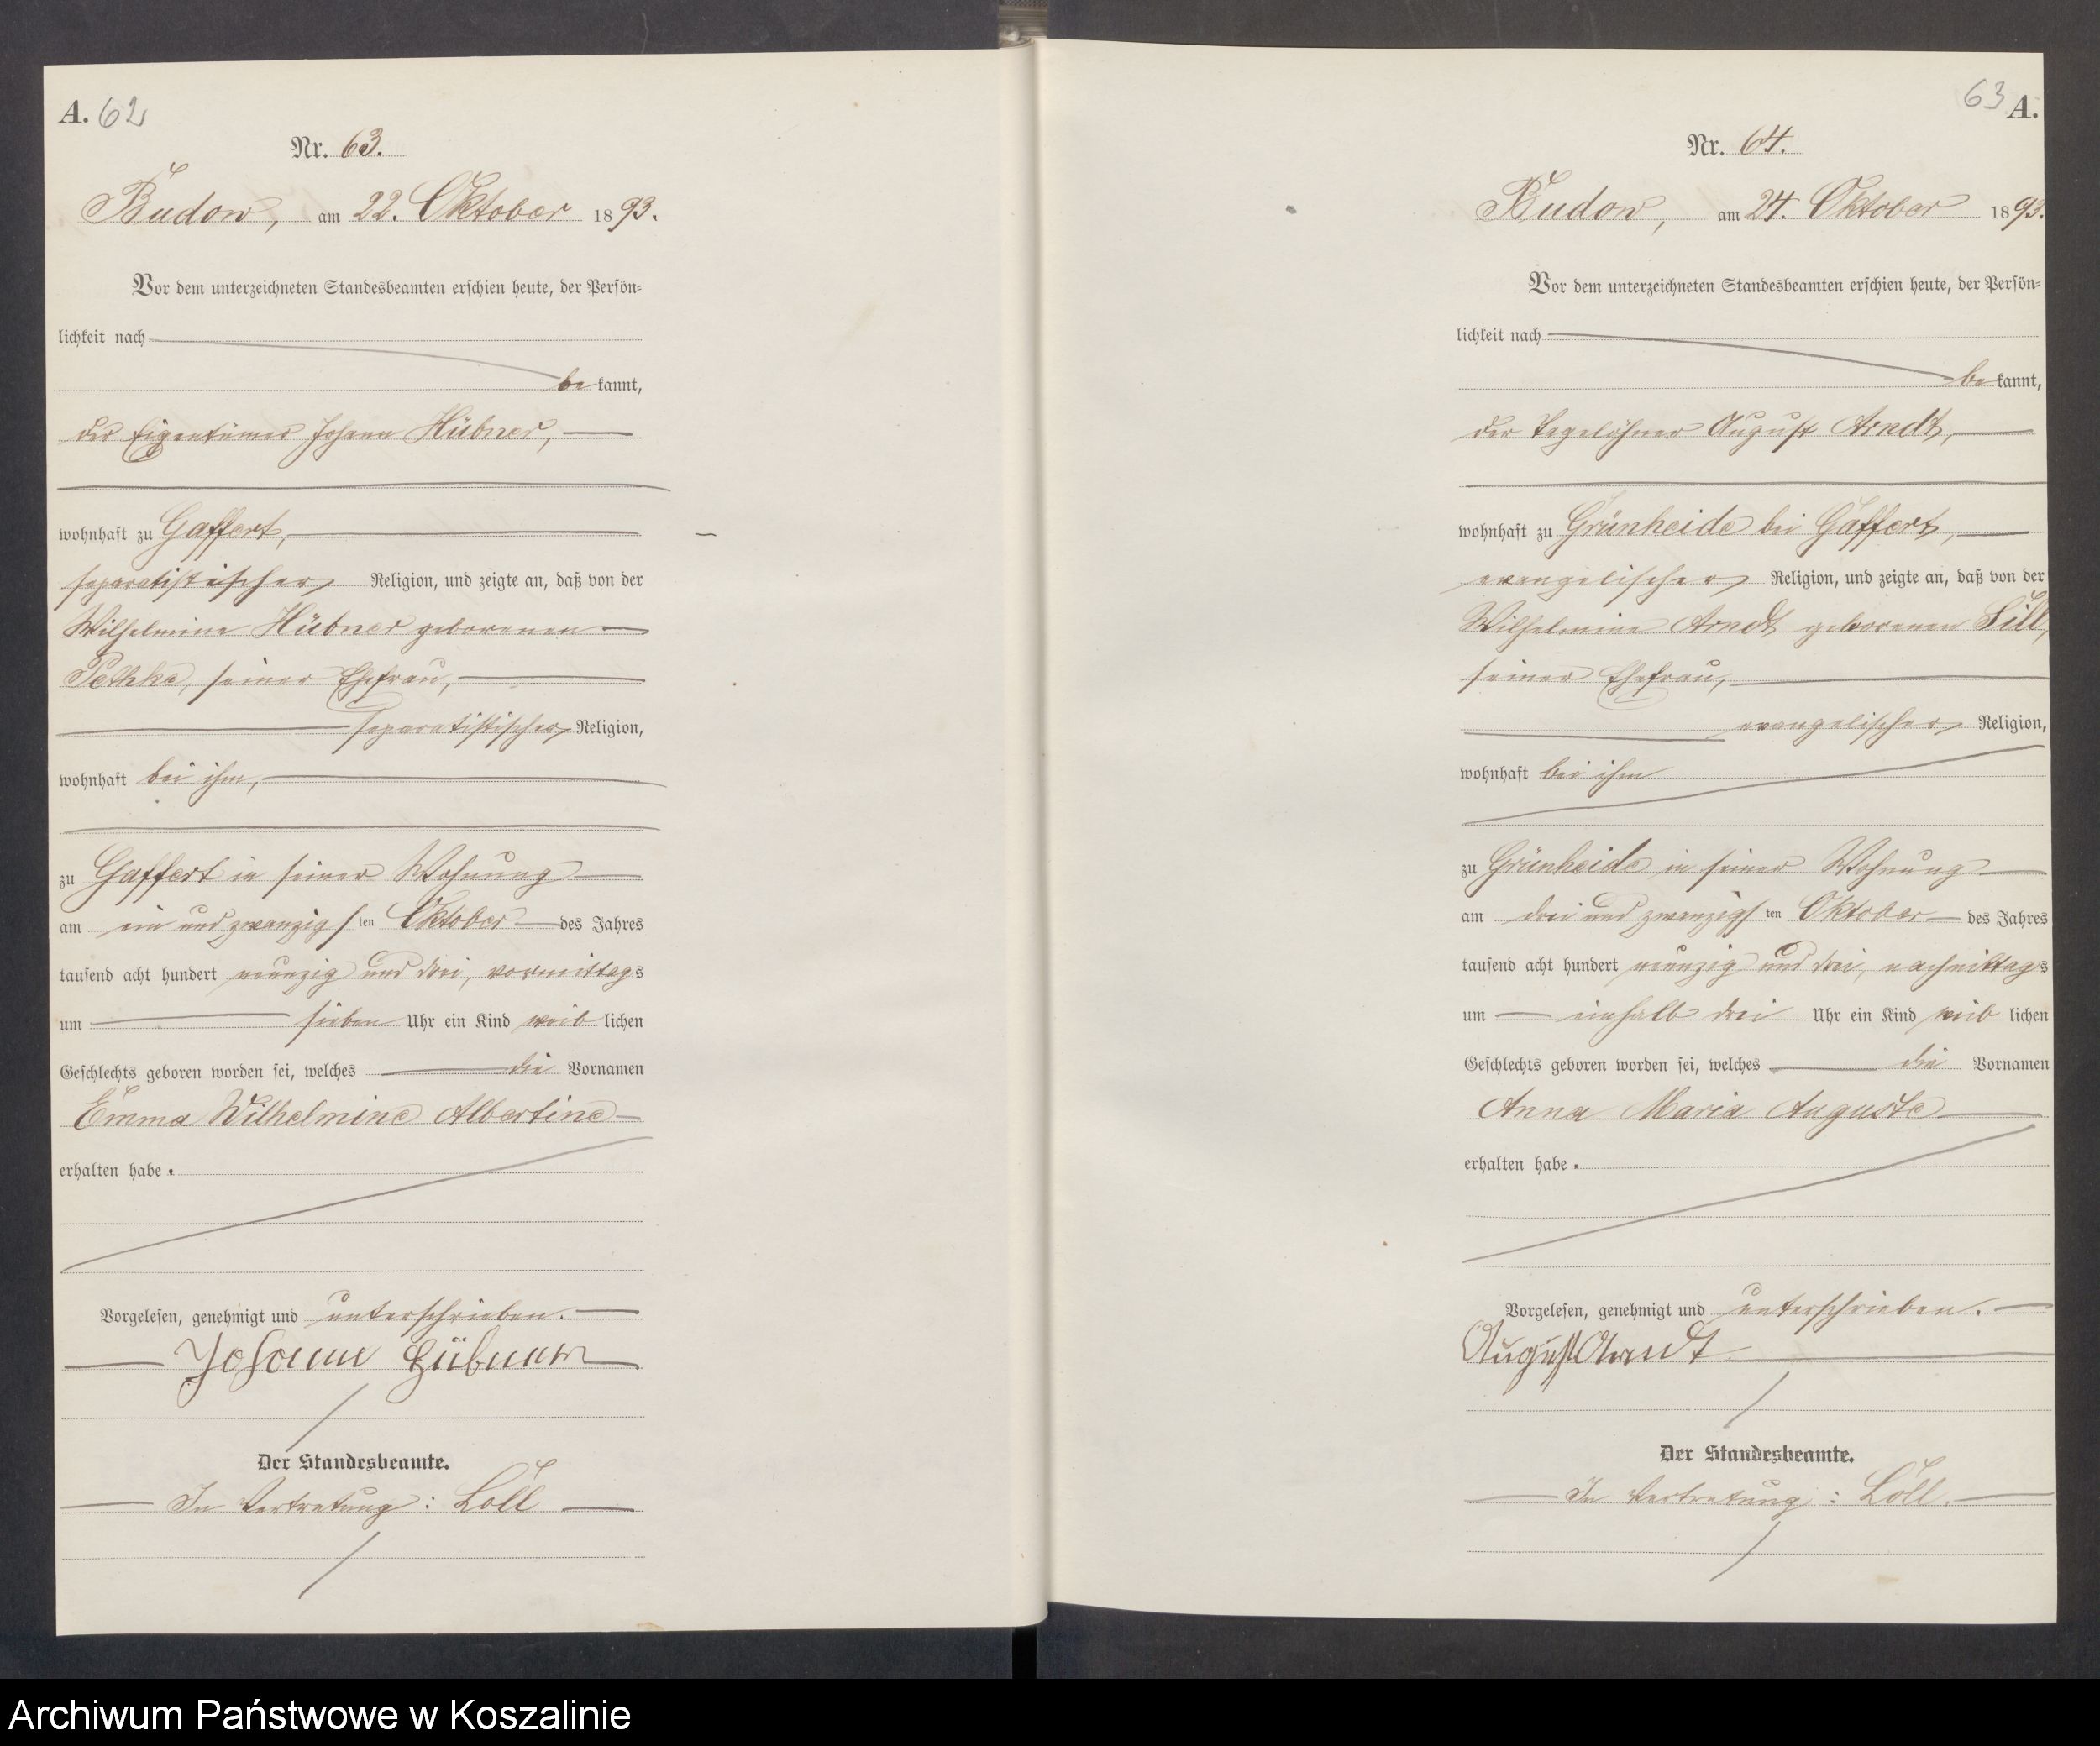 A. 62
Nr. 63.
Budow, am 22. Oktober 1893.
Vor dem unterzeichneten Standesbeamten erschien heute, der Persön-
lichkeit nach
be kannt,
der Eigentümer Johann Hübner,
wohnhaft zu Gaffert,
separatistischer Religion, und zeigte an, daß von der
Wilhelmine Hübner geborenen
Pethke, seiner Ehefrau,
separatistischer Religion,
wohnhaft bei ihm,
zu Gaffert in seiner Wohnung
am ein und zwanzigsten Oktober des Jahres
tausend acht hundert neunzig und drei, vormittags
um sieben Uhr ein Kind weib lichen
Geschlechts geboren worden sei, welches die Vornamen
Emma Wilhelmine Albertine
erhalten habe.
Vorgelesen, genehmigt und unterschrieben.
Johann Hübner
Der Standesbeamte.
In Vertretung: Löll
63 A.
Nr. 64.
Budow, am 24. Oktober 1893.
Vor dem unterzeichneten Standesbeamten erschien heute, der Persön-
lichkeit nach
be kannt,
der Tagelöhner August Arndt,
wohnhaft zu Grünheide bei Gaffert,
evangelischer Religion, und zeigte an, daß von der
Wilhelmine Arndt geborenen Sill,
seiner Ehefrau,
evangelischer Religion,
wohnhaft bei ihm
zu Grünheide in seiner Wohnung
am drei und zwanzigsten Oktober des Jahres
tausend acht hundert neunzig und drei, nachmittags
um einhalb drei Uhr ein Kind weib lichen
Geschlechts geboren worden sei, welches die Vornamen
Anna Maria Auguste
erhalten habe.
Vorgelesen, genehmigt und unterschrieben.
August Arndt
Der Standesbeamte.
In Vertretung: Löll.
Archiwum Państwowe w Koszalinie